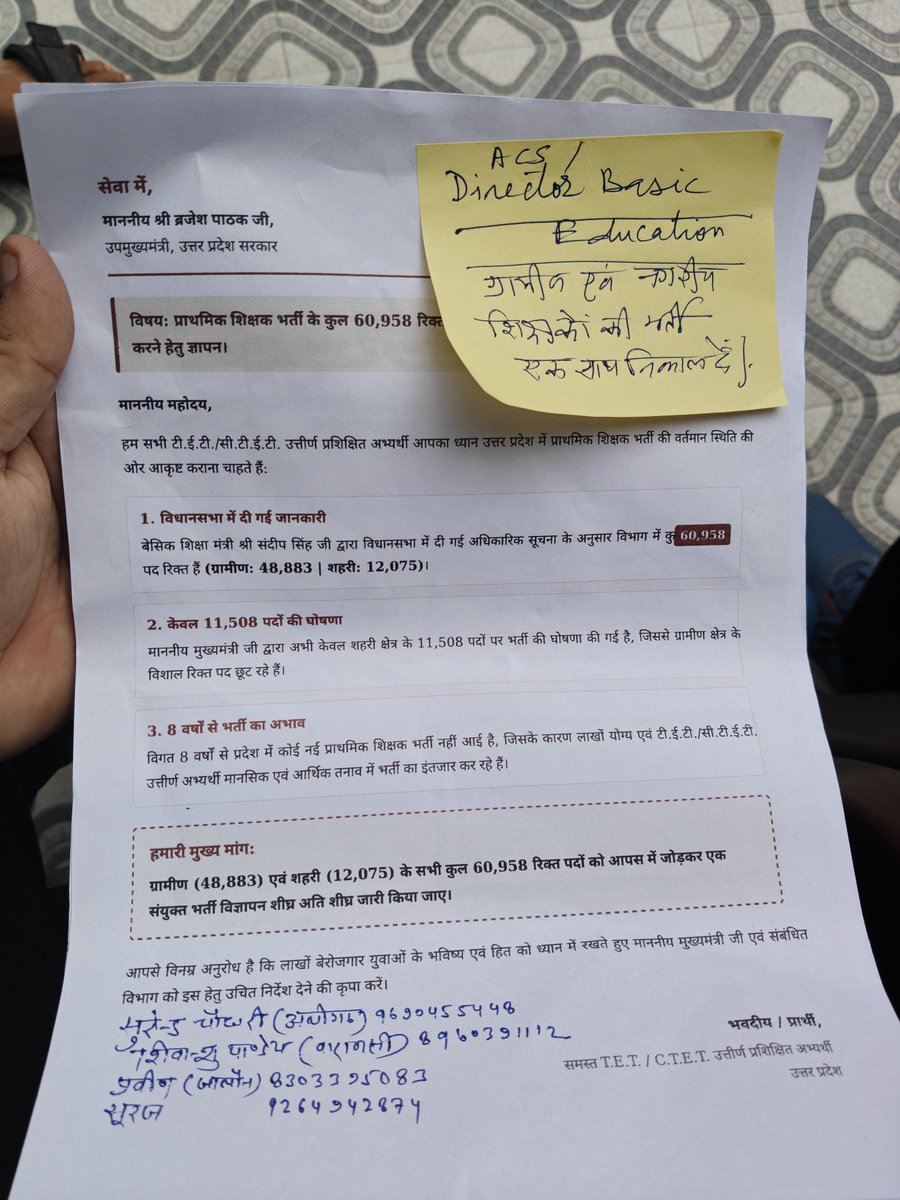 सेवा में,
माननीय श्री ब्रजेश पाठक जी,
उपमुख्यमंत्री, उत्तर प्रदेश सरकार
ACS /
Director Basic
Education
ग्रामीण एवं नगरीय
शिक्षकों की भर्ती
एक साथ निकाल दें।
विषय: प्राथमिक शिक्षक भर्ती के कुल 60,958 रिक्त
करने हेतु ज्ञापन।
माननीय महोदय,
हम सभी टी.ई.टी./सी.टी.ई.टी. उत्तीर्ण प्रशिक्षित अभ्यर्थी आपका ध्यान उत्तर प्रदेश में प्राथमिक शिक्षक भर्ती की वर्तमान स्थिति की
ओर आकृष्ट कराना चाहते हैं:
1. विधानसभा में दी गई जानकारी
बेसिक शिक्षा मंत्री श्री संदीप सिंह जी द्वारा विधानसभा में दी गई अधिकारिक सूचना के अनुसार विभाग में कु 60,958
पद रिक्त हैं (ग्रामीण: 48,883 | शहरी: 12,075)।
2. केवल 11,508 पदों की घोषणा
माननीय मुख्यमंत्री जी द्वारा अभी केवल शहरी क्षेत्र के 11,508 पदों पर भर्ती की घोषणा की गई है, जिससे ग्रामीण क्षेत्र के
विशाल रिक्त पद छूट रहे हैं।
3. 8 वर्षों से भर्ती का अभाव
विगत 8 वर्षों से प्रदेश में कोई नई प्राथमिक शिक्षक भर्ती नहीं आई है, जिसके कारण लाखों योग्य एवं टी.ई.टी./सी.टी.ई.टी.
उत्तीर्ण अभ्यर्थी मानसिक एवं आर्थिक तनाव में भर्ती का इंतजार कर रहे हैं।
हमारी मुख्य मांग:
ग्रामीण (48,883) एवं शहरी (12,075) के सभी कुल 60,958 रिक्त पदों को आपस में जोड़कर एक
संयुक्त भर्ती विज्ञापन शीघ्र अति शीघ्र जारी किया जाए।
आपसे विनम्र अनुरोध है कि लाखों बेरोजगार युवाओं के भविष्य एवं हित को ध्यान में रखते हुए माननीय मुख्यमंत्री जी एवं संबंधित
विभाग को इस हेतु उचित निर्देश देने की कृपा करें।
चौधरी (अलीगढ़) 9690455448
पाण्डेय (वाराणसी) 8960391112
प्रवीण (जालौन) 8303395083
सूरज 9264942874
भवदीय / प्रार्थी,
समस्त T.E.T. / C.T.E.T. उत्तीर्ण प्रशिक्षित अभ्यर्थी
उत्तर प्रदेश